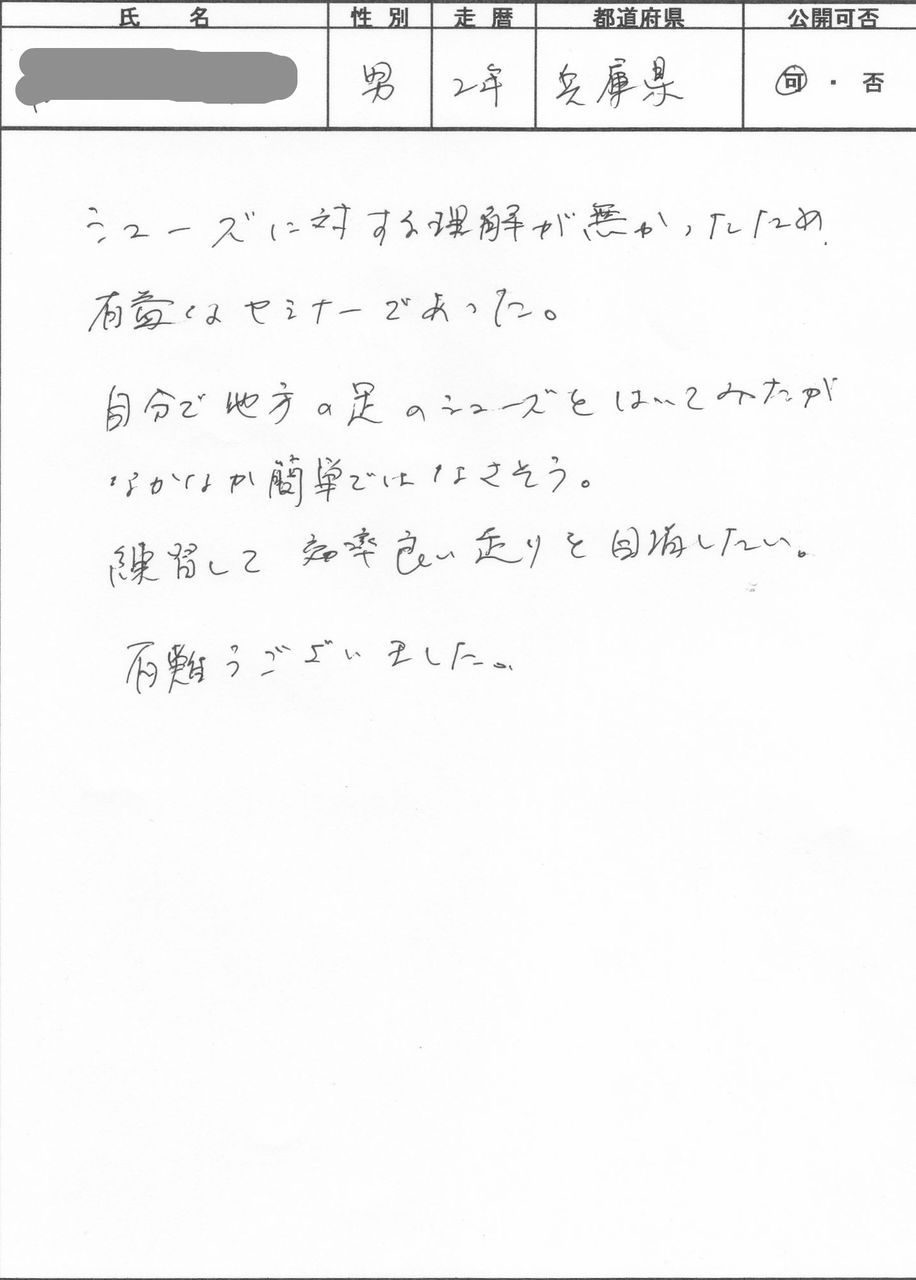 氏名 性別 走暦 都道府県 公開可否
男 2年 兵庫県 可・否
シューズに対する理解が無かったため
有益なセミナーであった。
自分で地方の足のシューズをはいてみたが
なかなか簡単ではなさそう。
練習して効率良い走りを目指したい。
有難うございました。